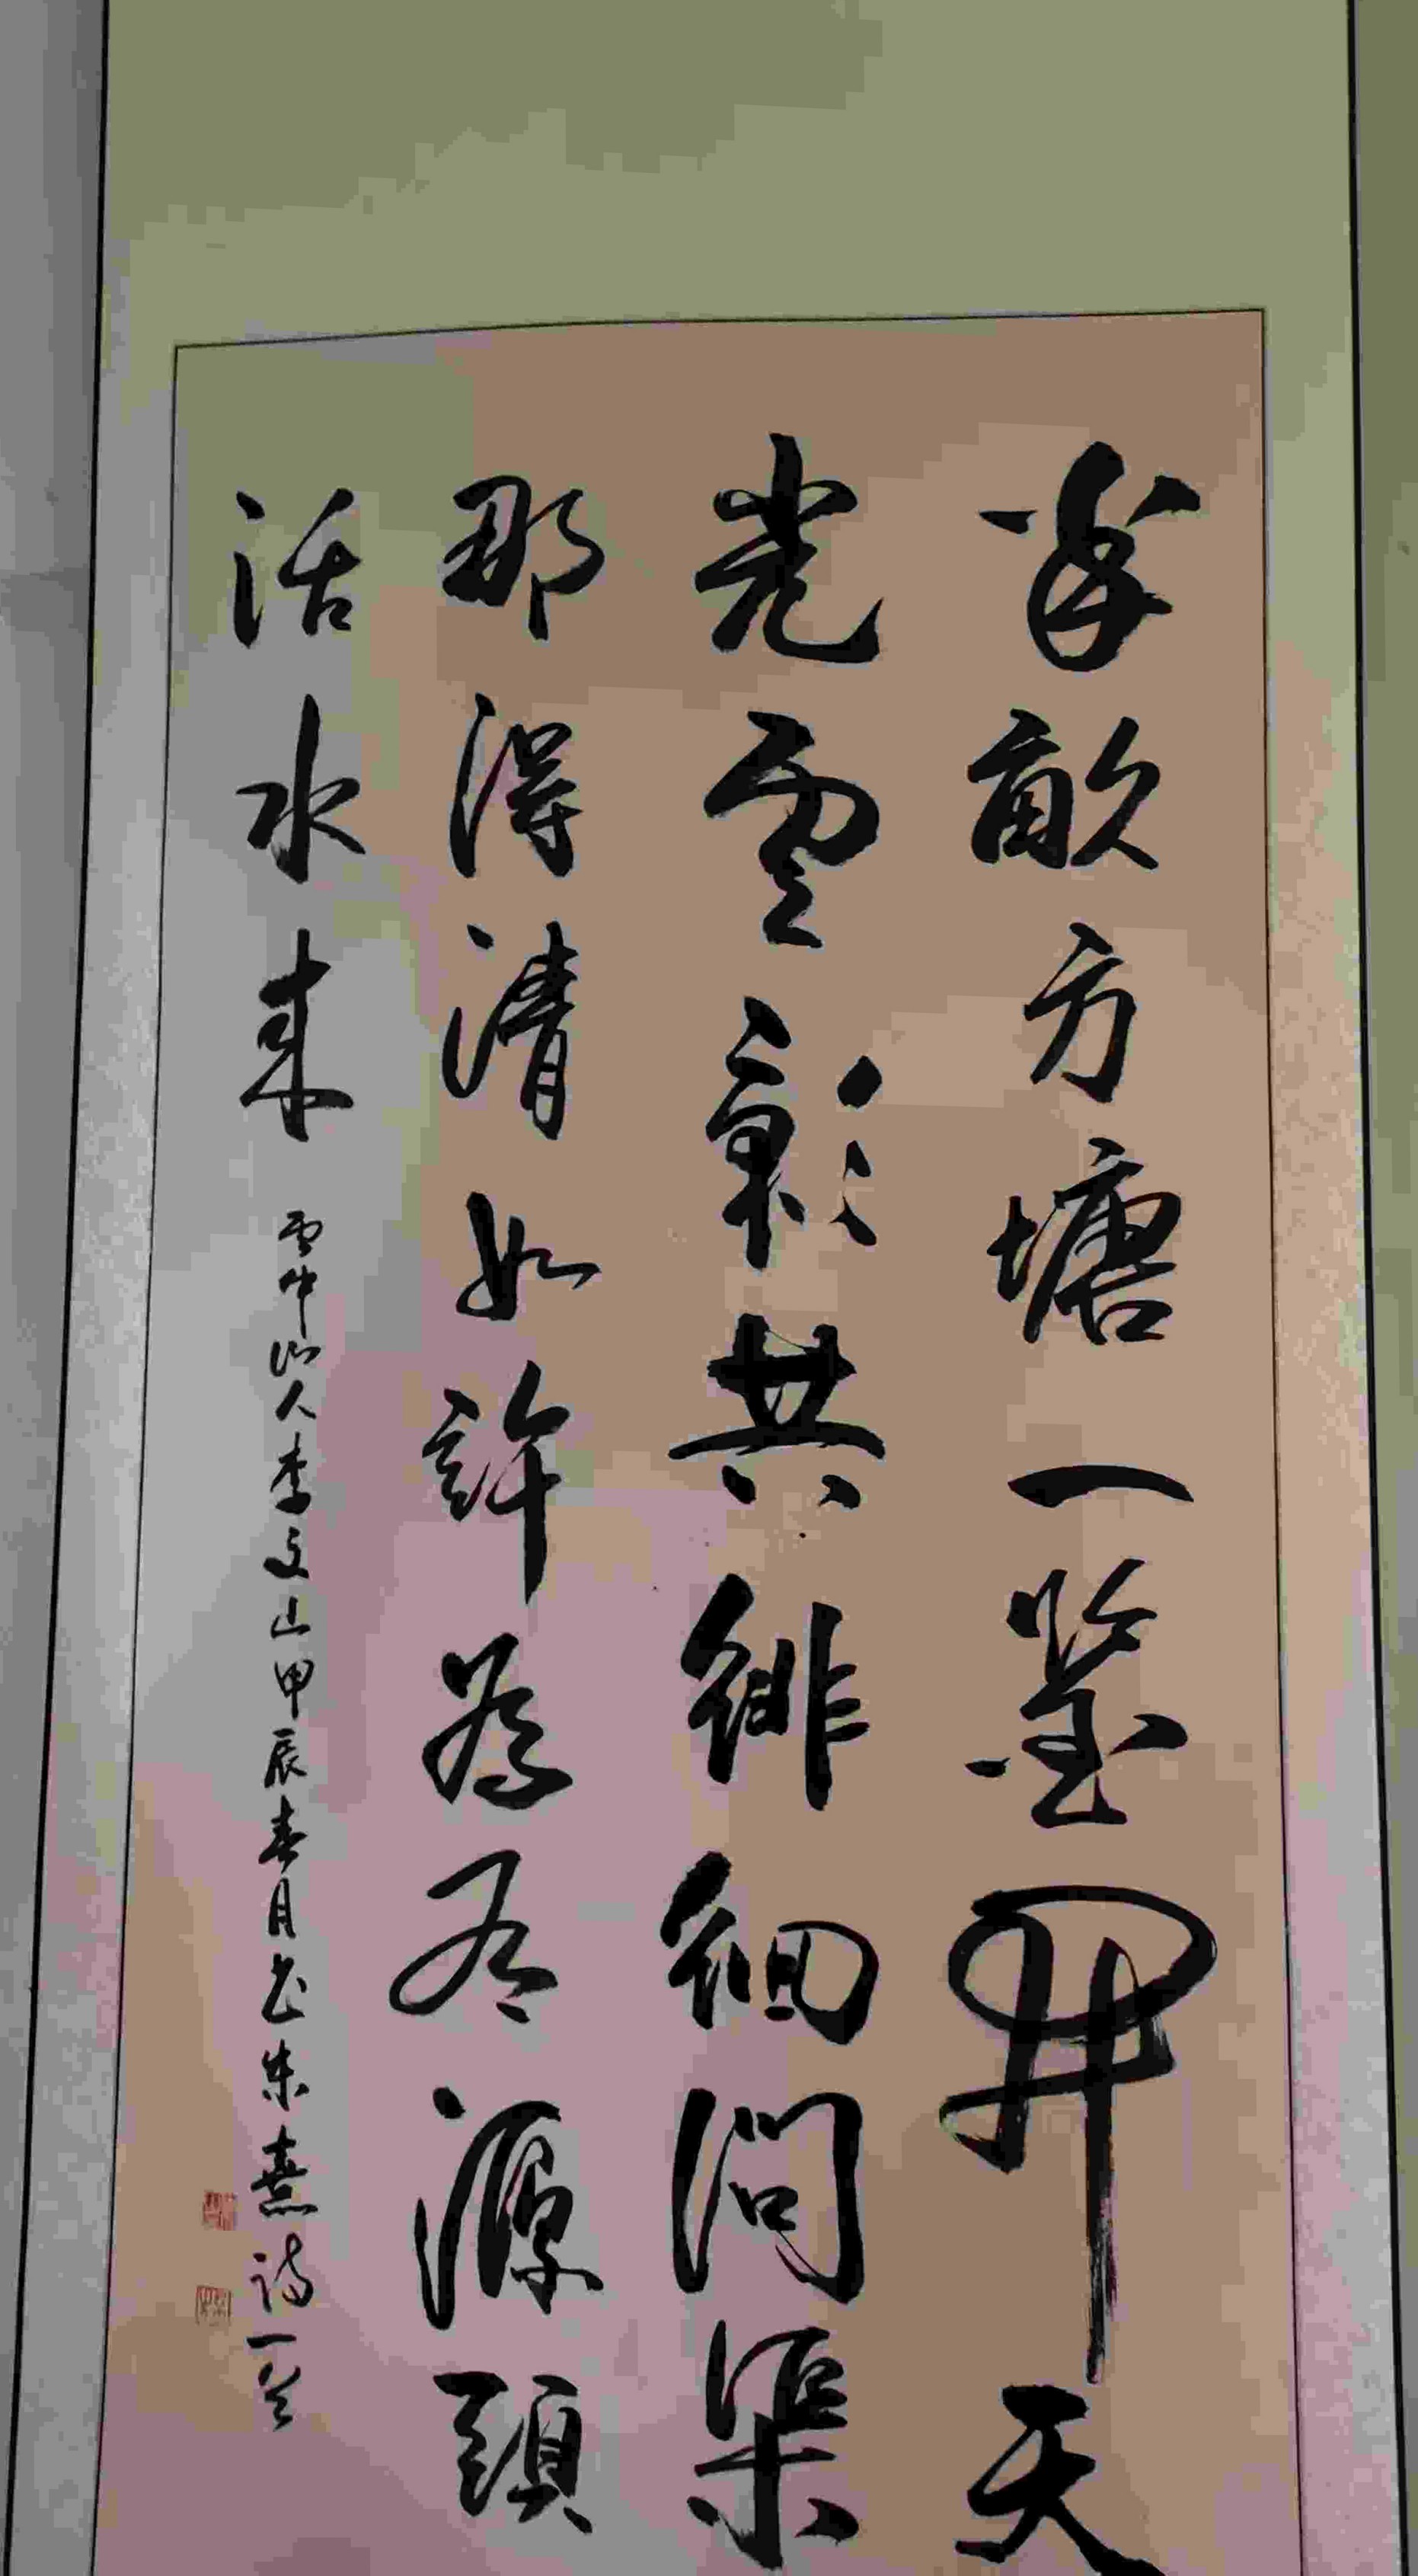 半畝方塘一鑒開天
光雲影共徘徊問渠
那得清如許為有源頭
活水來
雲中山人李文山甲辰春月書朱熹詩一首